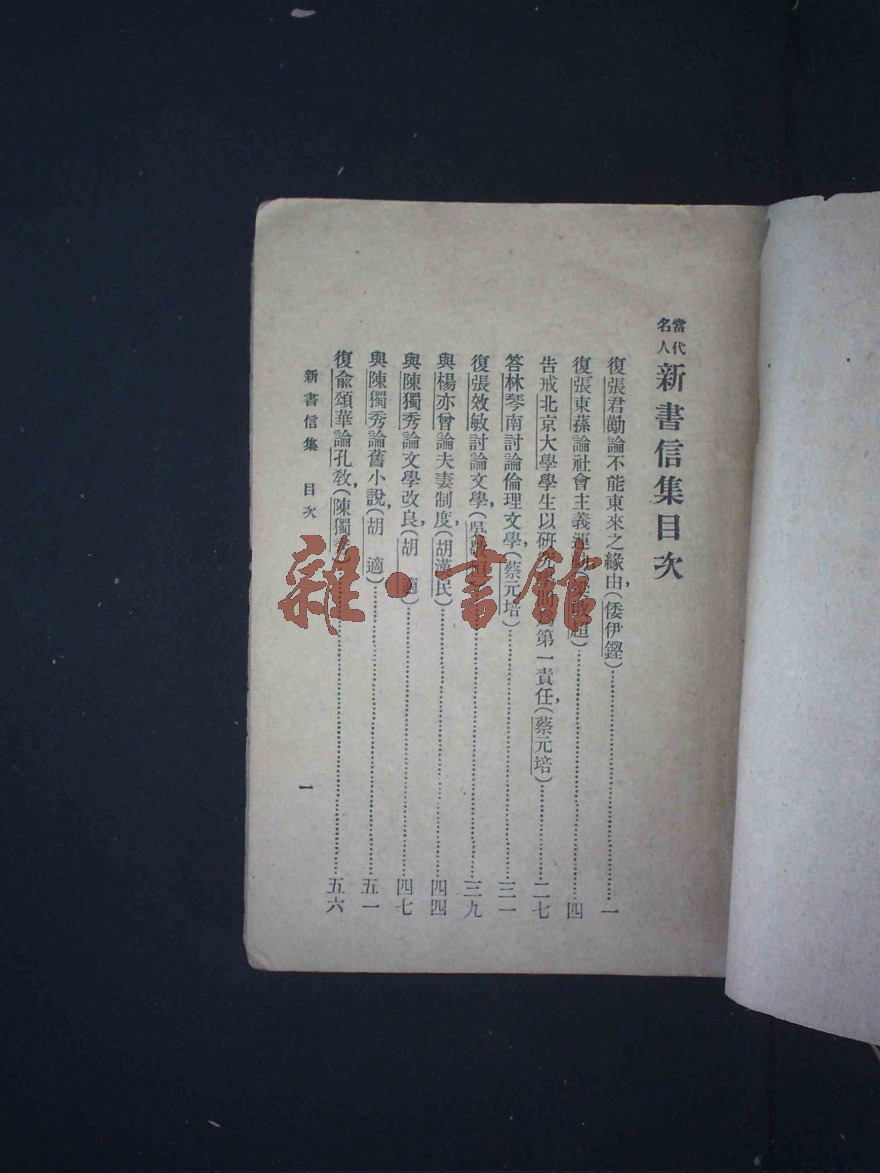 當代名人新書信集目次
復張君勱論不能東來之緣由,(倭伊鏗)……一
復張東蓀論社會主義運動,(梁啟超)……四
告戒北京大學學生以研究學問為第一責任,(蔡元培)……二七
答林琴南討論倫理文學,(蔡元培)……三一
復張效敏討論文學,(吳敬恒)……三九
與楊亦曾論夫妻制度,(胡漢民)……四四
與陳獨秀論文學改良,(胡 適)……四七
與陳獨秀論舊小說,(胡 適)……五一
復俞頌華論孔教,(陳獨秀)……五六
新書信集 目次
一
雜·書館